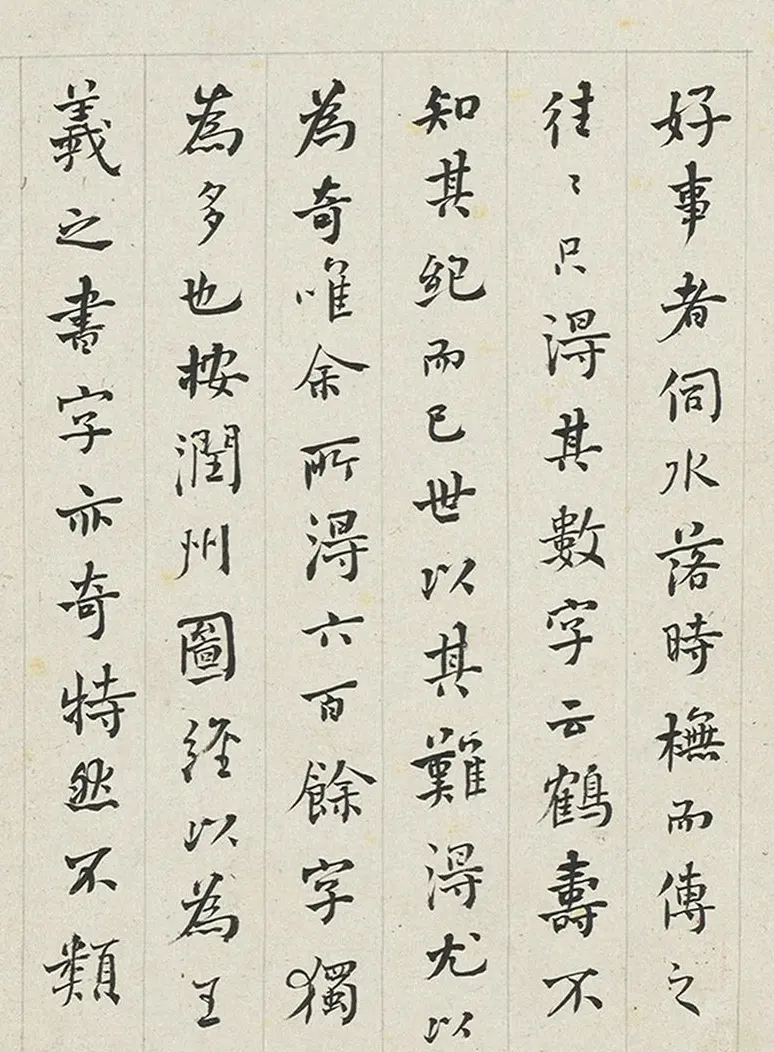 好事者伺水落時橅而傳之
往〻只淂其數字云鶴壽不
知其紀而已世以其難淂尤以
為奇唯余所淂六百餘字獨
為多也按潤州圖經以為王
羲之書字亦奇特然不類